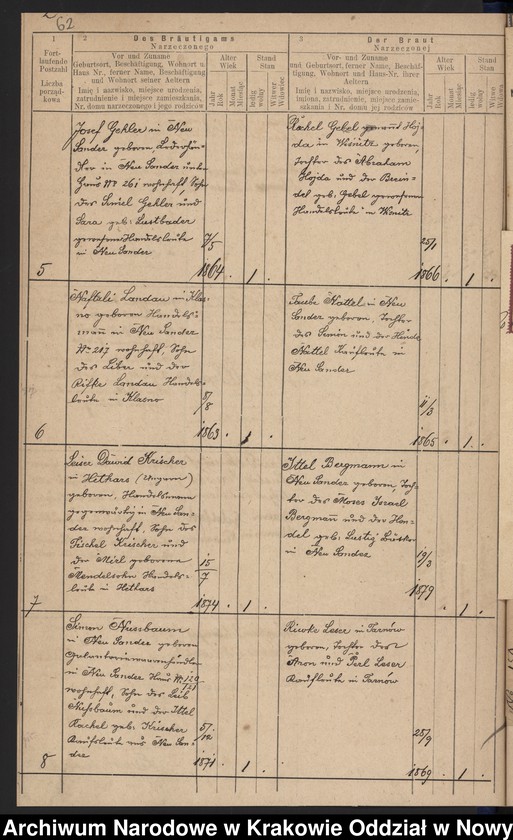 62
1
Fort-
laufende
Postzahl
Liczba
porząd-
kowa
2
Des Bräutigams
Narzeczonego
Vor- und Zuname
Geburtsort, Beschäftigung, Wohnort u
Haus Nr., ferner Name, Beschäftigung
und Wohnort seiner Aeltern
Imię i nazwisko, miejsce urodzenia,
zatrudnienie i miejsce zamieszkania,
Nr. domu narzeczonego i jego rodziców
Alter
Wiek
Stand
Stan
Jahr
Rok
Monat
Miesiąc
ledig
wolny
Witwer
Wdowiec
3
Der Braut
Narzeczonej
Vor- und Zuname
und Geburtsort, ferner Name, Beschäf-
tigung, Wohnort und Haus-Nr. ihrer
Aeltern
Imię i nazwisko, miejsce urodzenia,
imiona, zatrudnienie, miejsce zamie-
szkania i Nr. domu jej rodziców
Alter
Wiek
Stand
Stan
Jahr
Rok
Monat
Miesiąc
ledig
wolny
5
Josef Gehler in Neu
Sandez geboren
in Neu Sandez unter
Haus № 261 wohnhaft, Sohn
des Gehler und
Sara geb. Lustbader
Handelsleute
in Neu Sandez
7/5
1864 . 1 .
Rachel Gebel genannt Hoj-
da in Wisnitz geboren,
Tochter des Abraham
Hojda und der Brein-
del geb. Gebel
Handelsleute in
25/1
1866 . 1 .
6
Naftali Landau in Klas-
no geboren Handels-
mann in Neu Sandez
№ 217 wohnhaft, Sohn
des Liber und der
Rifke Landau Handels-
leute in Klasno
5/8
1863 . 1 .
Taube Nattel in Neu
Sandez geboren, Tochter
des Simon und der Hinde
Nattel Kaufleute in
Neu Sandez
11/3
1865 . 1 .
7
Leiser Dawid Krischer
in Hethars (Ungarn)
geboren, Handelsmann
gegenwärtig in Neu San-
dez wohnhaft, Sohn des
Fischel Krischer und
der Mirl geborene
Mendelsohn Handels-
leute in Hethars
15/7
1874 . 1
Ittel Bergmann in
Neu Sandez geboren, Toch-
ter des Moses Israel
Bergmann und der Hen-
del geb. Lustig
in Neu Sandez
19/3
1879 . 1
8
Simon Nussbaum
in Neu Sandez geboren
Galanteriewarenhändler
in Neu Sandez Haus №
wohnhaft, Sohn des Leib
Nussbaum und der Ittel
Rachel geb. Krischer
Kaufleute aus Neu San-
dez
5/12
1871 . 1
Riwke Leser in Tarnów
geboren, Tochter des
Aron und Perl Leser
Kaufleute in Tarnów
25/9
1869 . 1 .
Archiwum Narodowe w Krakowie Oddział w Nowy